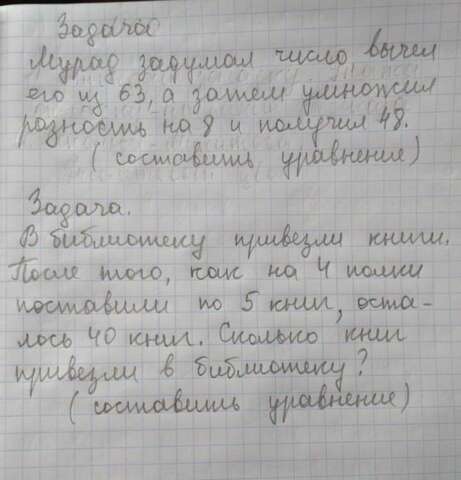 Задача
Мурад задумал число вычел
его из 63, а затем умножил
разность на 8 и получил 48.
(составить уравнение)
Задача.
В библиотеку привезли книги.
После того, как на 4 полки
поставили по 5 книг, оста-
лось 40 книг. Сколько книг
привезли в библиотеку?
(составить уравнение)